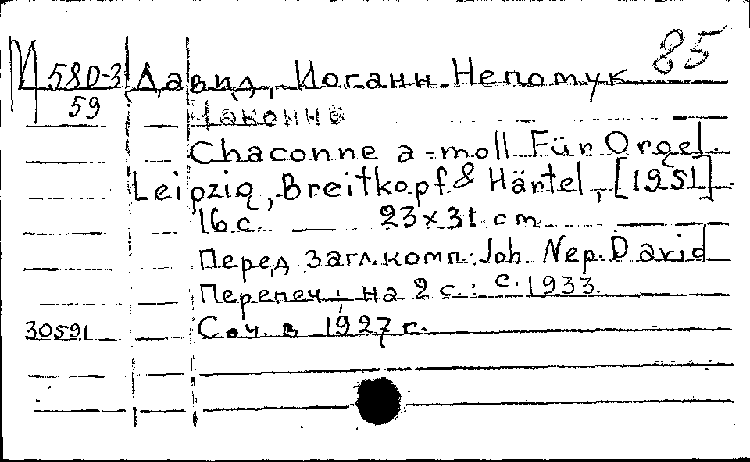 85
И 580-3 Давид, Иоганн Непомук
59
Чаконна
Chaconne a-moll Für Orgel.
Leipzig, Breitkopf & Härtel, [1951]
16 с. 23×31 cm
Перед загл. комп.: Joh. Nep. David
Перепеч. на 2 с.: с. 1933.
30591 Соч. в 1927 г.